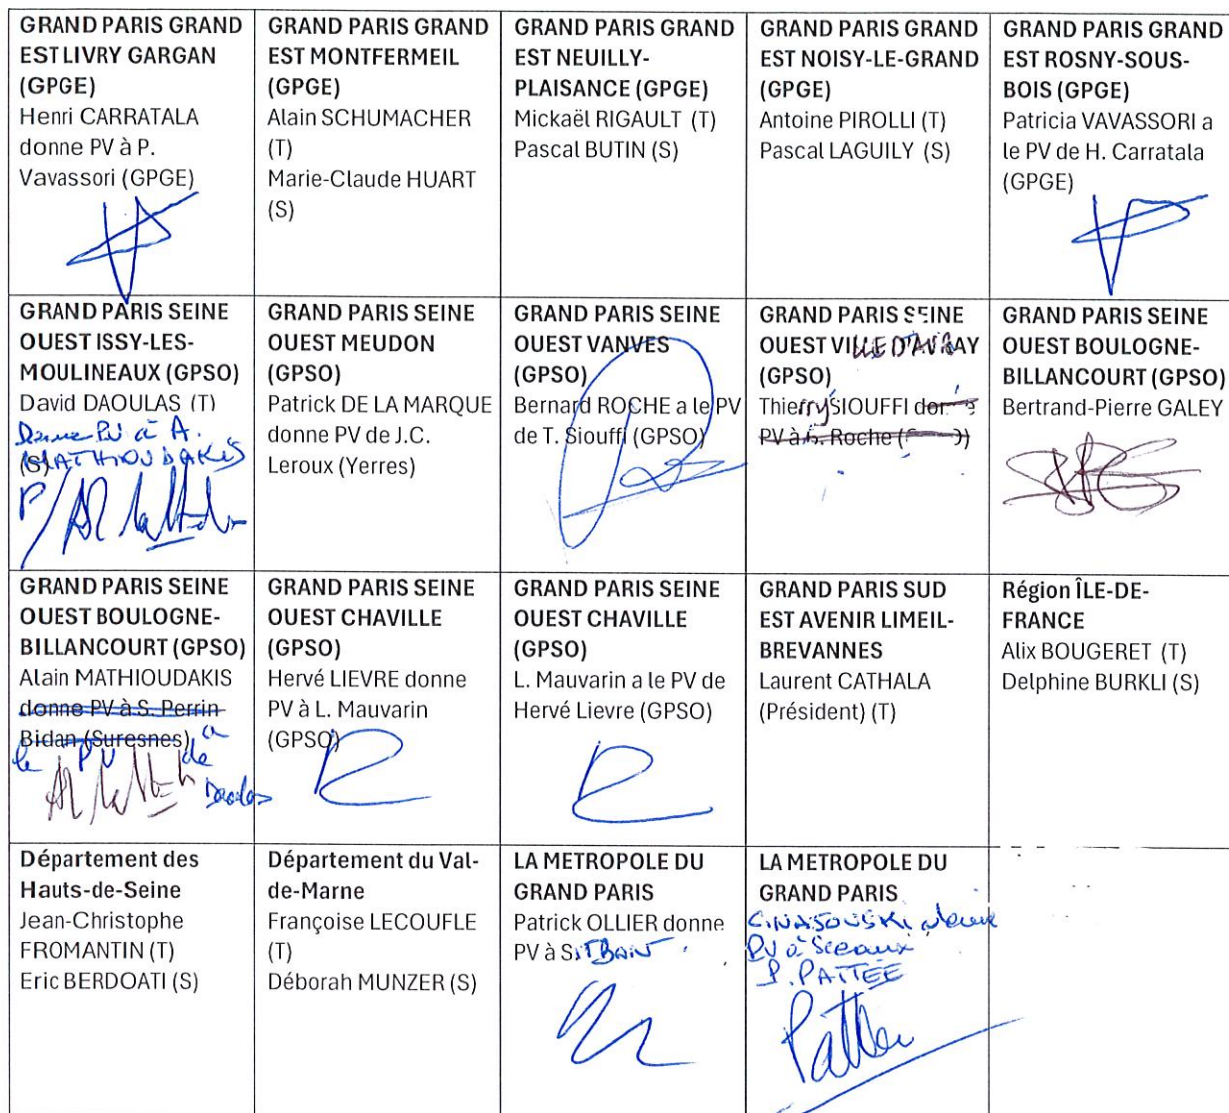 GRAND PARIS GRAND
EST LIVRY GARGAN
(GPGE)
Henri CARRATALA
donne PV à P.
Vavassori (GPGE)
GRAND PARIS GRAND
EST MONTFERMEIL
(GPGE)
Alain SCHUMACHER
(T)
Marie-Claude HUART
(S)
GRAND PARIS GRAND
EST NEUILLY-
PLAISANCE (GPGE)
Mickaël RIGAULT (T)
Pascal BUTIN (S)
GRAND PARIS GRAND
EST NOISY-LE-GRAND
(GPGE)
Antoine PIROLLI (T)
Pascal LAGUILY (S)
GRAND PARIS GRAND
EST ROSNY-SOUS-
BOIS (GPGE)
Patricia VAVASSORI a
le PV de H. Carratala
(GPGE)
GRAND PARIS SEINE
OUEST ISSY-LES-
MOULINEAUX (GPSO)
David DAOULAS (T)
Donne PV à A.
(S) MATHIOUDAKIS
P/
GRAND PARIS SEINE
OUEST MEUDON
(GPSO)
Patrick DE LA MARQUE
donne PV de J.C.
Leroux (Yerres)
GRAND PARIS SEINE
OUEST VANVES
(GPSO)
Bernard ROCHE a le PV
de T. Siouffi (GPSO)
GRAND PARIS SEINE
OUEST VILLE D'AVRAY
(GPSO)
Thierry SIOUFFI donne
PV à B. Roche
GRAND PARIS SEINE
OUEST BOULOGNE-
BILLANCOURT (GPSO)
Bertrand-Pierre GALEY
GRAND PARIS SEINE
OUEST BOULOGNE-
BILLANCOURT (GPSO)
Alain MATHIOUDAKIS
donne PV à S. Perrin
Bidan (Suresnes) a
le PV de
Daoulas
GRAND PARIS SEINE
OUEST CHAVILLE
(GPSO)
Hervé LIEVRE donne
PV à L. Mauvarin
(GPSO)
GRAND PARIS SEINE
OUEST CHAVILLE
(GPSO)
L. Mauvarin a le PV de
Hervé Lievre (GPSO)
GRAND PARIS SUD
EST AVENIR LIMEIL-
BREVANNES
Laurent CATHALA
(Président) (T)
Région ÎLE-DE-
FRANCE
Alix BOUGERET (T)
Delphine BURKLI (S)
Département des
Hauts-de-Seine
Jean-Christophe
FROMANTIN (T)
Eric BERDOATI (S)
Département du Val-
de-Marne
Françoise LECOUFLE
(T)
Déborah MUNZER (S)
LA METROPOLE DU
GRAND PARIS
Patrick OLLIER donne
PV à
LA METROPOLE DU
GRAND PARIS
donne
PV à Sceaux
P. PATTEE
Pattee